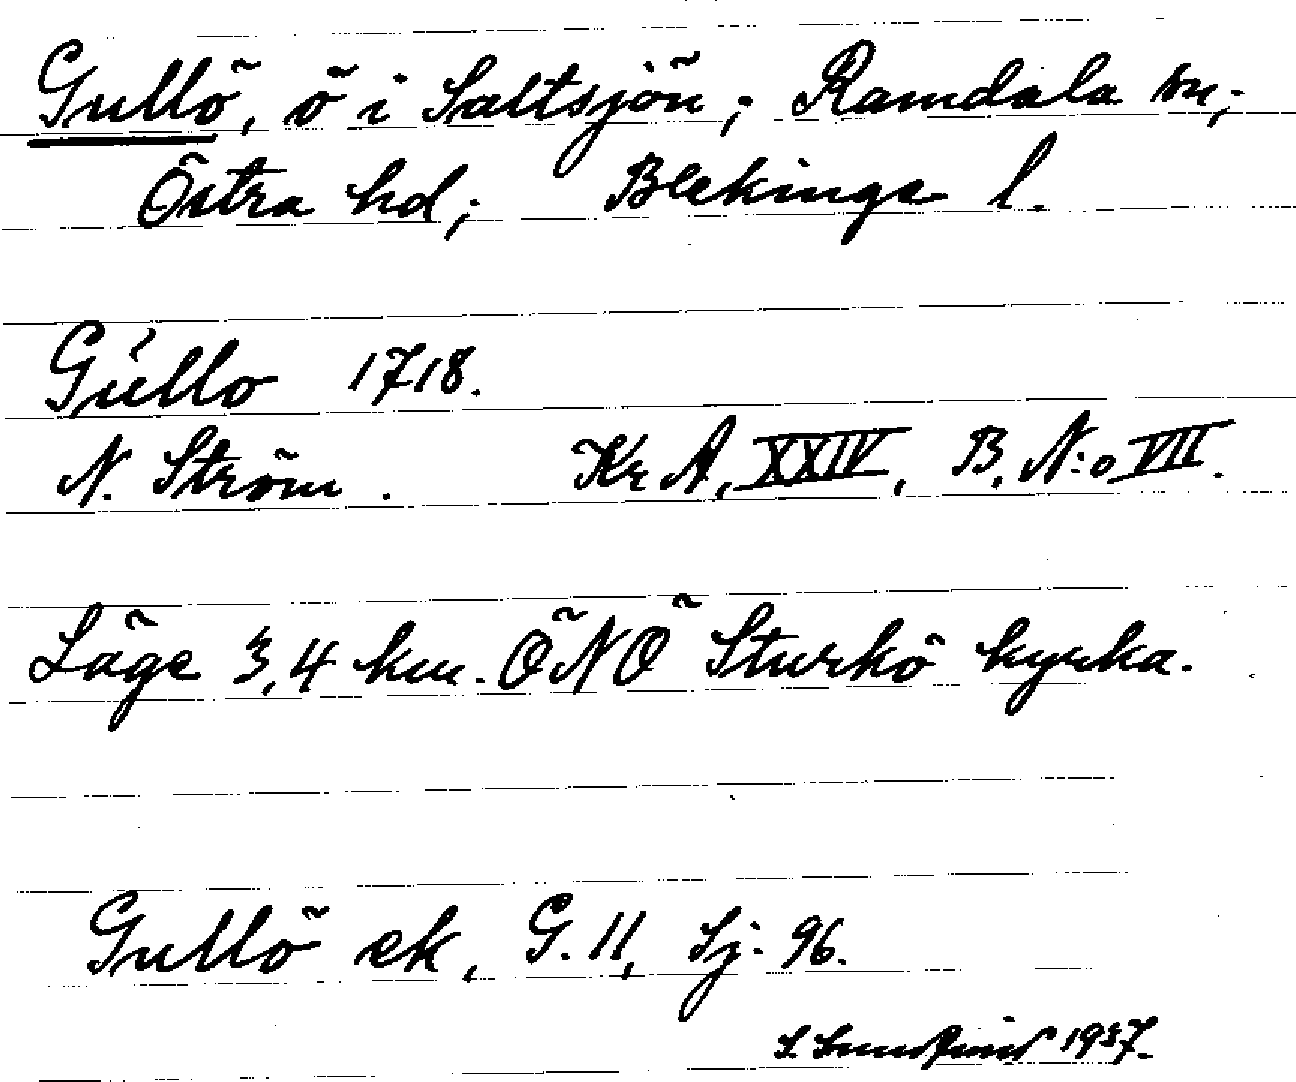 Gullö, ö i Saltsjön; Ramdala sn;
Östra hd; Blekinge l.
Gúllo 1718.
N. Ström. Kr A, XXIV, B. N:o VII.
Läge 3,4 km. ÖNÖ Sturkö kyrka.
Gullö ek, G. 11, Sj: 96.
1937.